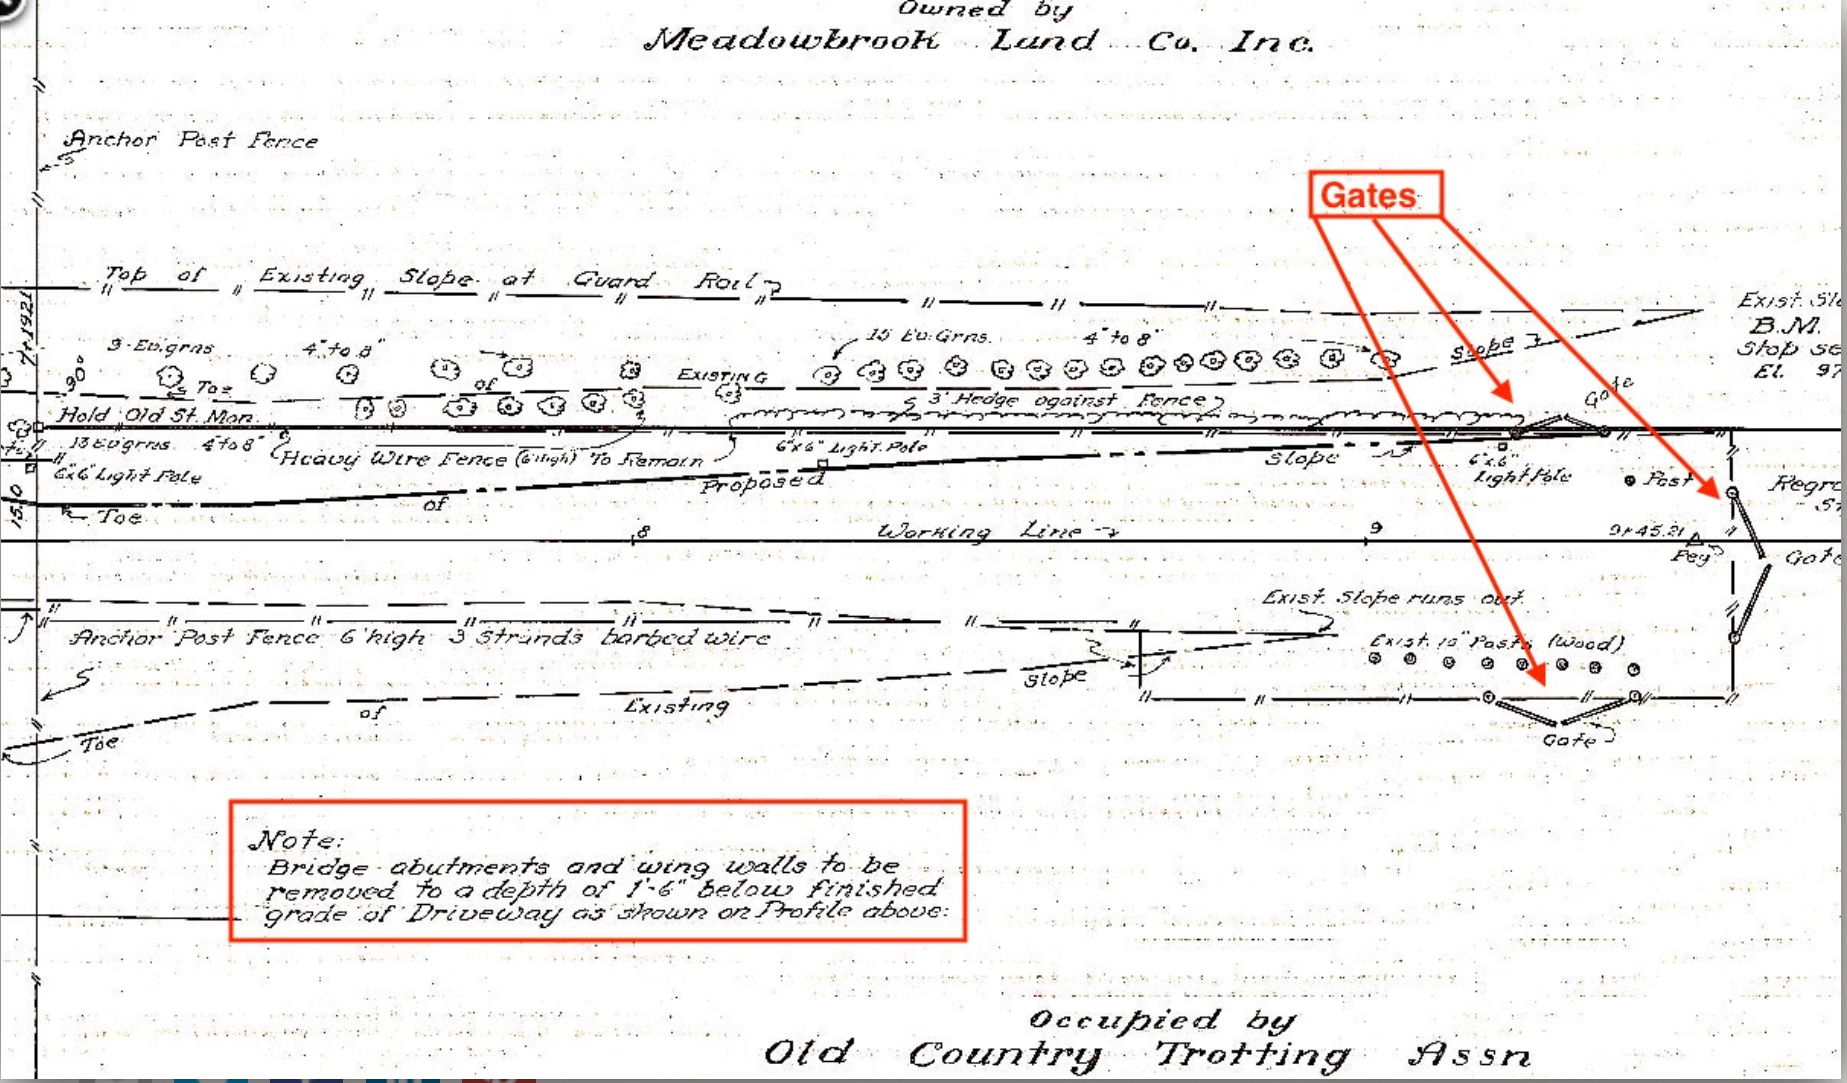 Owned by
Meadowbrook Land Co. Inc.
Anchor Post Fence
Gates
Top of Existing Slope at Guard Rail
Exist. Sl
B.M.
Stop se
El. 97
7+19.21
3-Ev.grns 4" to 8"
15 Ev.Grns. 4" to 8"
Slope
90°
Toe of EXISTING
Gate
3' Hedge against Fence
Hold Old St. Mon.
13 Ev.grns 4" to 8"
Heavy Wire Fence (6'high) To Remain
6"x6" Light Pole
6"x6" Light Pole
Slope
6"x6"
Light Pole
Post
Regra
Proposed
of
Toe
15.10
8
Working Line
9
9+45.21
Peg
Gate
Exist. Slope runs out
Anchor Post Fence 6' high 3 Strands barbed wire
Exist. 10" Posts (Wood)
Slope
Existing
of
Toe
Gate
Note:
Bridge abutments and wing walls to be
removed to a depth of 1'-6" below finished
grade of Driveway as shown on Profile above:
Occupied by
Old Country Trotting Assn